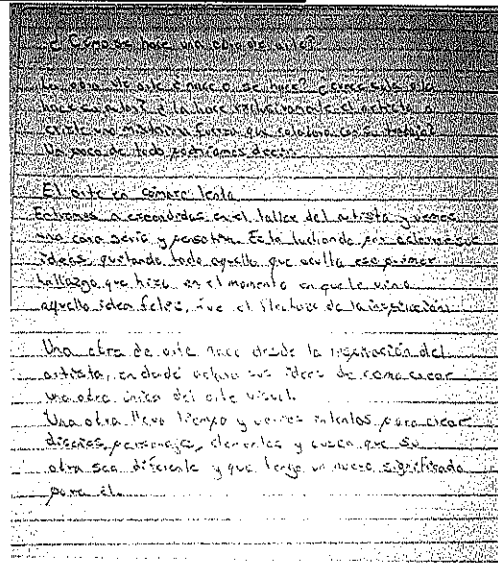 ¿Cómo se hace una obra de arte?
La obra de arte ¿nace o se hace? ¿
hace su autor? ¿la hace exclusivamente el artista o
existe una misteriosa fuerza que colabora con su trabajo?
Un poco de todo podríamos decir.
El arte en cámara lenta
Entramos a escondidas en el taller del artista y vemos
una cara seria y pensativa. Esta luchando por aclarar sus
ideas, quitando todo aquello que oculta ese primer
hallazgo que hizo en el momento en que le vino
aquella idea feliz, fue el flechazo de la inspiración
Una obra de arte nace desde la inspiración del
artista, en donde aclara sus ideas de como crear
una obra única del arte visual.
Una obra lleva tiempo y varios intentos para crear
diseños, personajes, elementos y que su
obra sea diferente y que tenga un nuevo significado
para él.